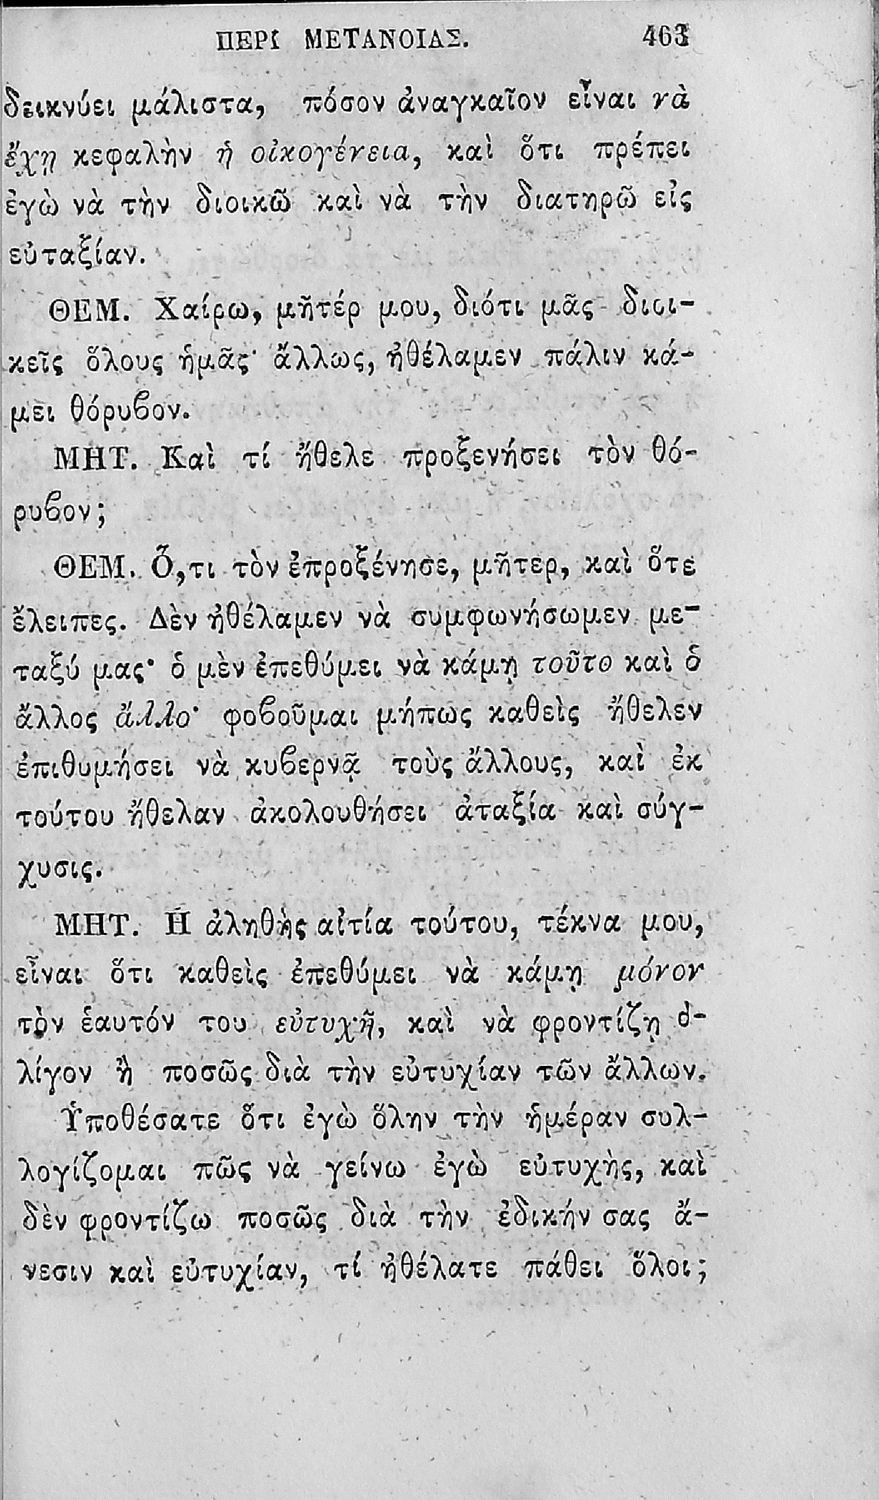 ΠΕΡΙ ΜΕΤΑΝΟΙΑΣ. 463
δεικνύει μάλιστα, πόσον ἀναγκαῖον εἶναι νὰ
ἔχῃ κεφαλὴν ἡ οἰκογένεια, καὶ ὅτι πρέπει
ἐγὼ νὰ τὴν διοικῶ καὶ νὰ τὴν διατηρῶ εἰς
εὐταξίαν.
ΘΕΜ. Χαίρω, μῆτέρ μου, διότι μᾶς διοι-
κεῖς ὅλους ἡμᾶς· ἄλλως, ἠθέλαμεν πάλιν κά-
μει θόρυβον.
ΜΗΤ. Καὶ τί ἤθελε προξενήσει τὸν θό-
ρυβον;
ΘΕΜ. Ὅ,τι τὸν ἐπροξένησε, μῆτερ, καὶ ὅτε
ἔλειπες. Δὲν ἠθέλαμεν νὰ συμφωνήσωμεν με-
ταξύ μας· ὁ μὲν ἐπεθύμει νὰ κάμῃ τοῦτο καὶ ὁ
ἄλλος ἄλλο· φοβοῦμαι μήπως καθεὶς ἤθελεν
ἐπιθυμήσει νὰ κυβερνᾷ τοὺς ἄλλους, καὶ ἐκ
τούτου ἤθελαν ἀκολουθήσει ἀταξία καὶ σύγ-
χυσις.
ΜΗΤ. Ἡ ἀληθὴς αἰτία τούτου, τέκνα μου,
εἶναι ὅτι καθεὶς ἐπεθύμει νὰ κάμῃ μόνον
τὸν ἑαυτόν του εὐτυχῆ, καὶ νὰ φροντίζῃ ὀ-
λίγον ἢ ποσῶς διὰ τὴν εὐτυχίαν τῶν ἄλλων.
Ὑποθέσατε ὅτι ἐγὼ ὅλην τὴν ἡμέραν συλ-
λογίζομαι πῶς νὰ γείνω ἐγὼ εὐτυχὴς, καὶ
δὲν φροντίζω ποσῶς διὰ τὴν ἐδικήν σας ἄ-
νεσιν καὶ εὐτυχίαν, τί ἠθέλατε πάθει ὅλοι;